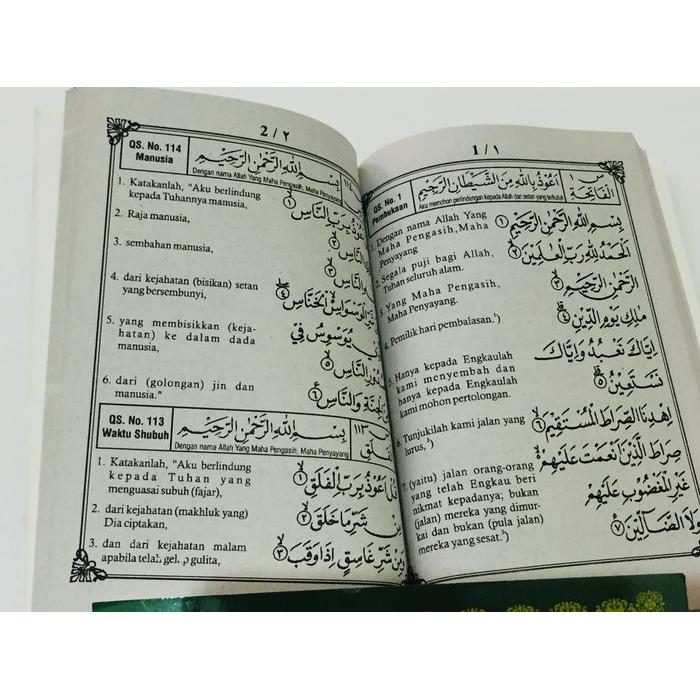 1/١
QS. No. 1
Pembukaan
أَعُوْذُ بِاللّٰهِ مِنَ الشَّيْطَانِ الرَّجِيْمِ
Aku memohon perlindungan kepada Allah dari setan yang terkutuk
س ١
الفَاتِحَة
1. Dengan nama Allah Yang
Maha Pengasih, Maha
Penyayang
بِسْمِ اللّٰهِ الرَّحْمٰنِ الرَّحِيْمِ ۝١
2. Segala puji bagi Allah,
Tuhan seluruh alam.
اَلْحَمْدُ لِلّٰهِ رَبِّ الْعٰلَمِيْنَ ۝٢
3. Yang Maha Pengasih,
Maha Penyayang.
الرَّحْمٰنِ الرَّحِيْمِ ۝٣
4. Pemilik hari pembalasan.*)
مٰلِكِ يَوْمِ الدِّيْنِ ۝٤
5. Hanya kepada Engkaulah
kami menyembah dan
hanya kepada Engkaulah
kami mohon pertolongan.
اِيَّاكَ نَعْبُدُ وَاِيَّاكَ
نَسْتَعِيْنُ ۝٥
6. Tunjukilah kami jalan yang
lurus,*)
اِهْدِنَا الصِّرَاطَ الْمُسْتَقِيْمَ ۝٦
7. (yaitu) jalan orang-orang
yang telah Engkau beri
nikmat kepadanya; bukan
(jalan) mereka yang dimur-
kai dan bukan (pula jalan)
mereka yang sesat.*)
صِرَاطَ الَّذِيْنَ اَنْعَمْتَ عَلَيْهِمْ
غَيْرِ الْمَغْضُوْبِ عَلَيْهِمْ
وَلَا الضَّآلِّيْنَ ۝٧
2/٢
QS. No. 114
Manusia
بِسْمِ اللّٰهِ الرَّحْمٰنِ الرَّحِيْمِ
Dengan nama Allah Yang Maha Pengasih, Maha Penyayang
١١٤
1. Katakanlah, "Aku berlindung
kepada Tuhannya manusia,
اَعُوْذُ بِرَبِّ النَّاسِ ۝١
2. Raja manusia,
النَّاسِ ۝٢
3. sembahan manusia,
النَّاسِ ۝٣
4. dari kejahatan (bisikan) setan
yang bersembunyi,
الْوَسْوَاسِ الْخَنَّاسِ ۝٤
5. yang membisikkan (keja-
hatan) ke dalam dada
manusia,
يُوَسْوِسُ فِيْ
النَّاسِ ۝٥
6. dari (golongan) jin dan
manusia."
الْجِنَّةِ وَالنَّاسِ ۝٦
QS. No. 113
Waktu Shubuh
بِسْمِ اللّٰهِ الرَّحْمٰنِ الرَّحِيْمِ
Dengan nama Allah Yang Maha Pengasih, Maha Penyayang
١١٣
1. Katakanlah, "Aku berlindung
kepada Tuhan yang
menguasai subuh (fajar),
اَعُوْذُ بِرَبِّ الْفَلَقِ ۝١
2. dari kejahatan (makhluk yang)
Dia ciptakan,
شَرِّ مَا خَلَقَ ۝٢
3. dan dari kejahatan malam
apabila telah gelap gulita,
شَرِّ غَاسِقٍ اِذَا وَقَبَ ۝٣